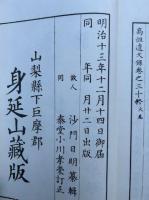 高祖遺文録巻之三十終大尾
明治十三年十二月十四日御届
同　年　同　月廿二日出版
故人　沙門日明纂輯
同　泰堂小川孝榮訂正
山梨縣下巨摩郡
身延山藏版